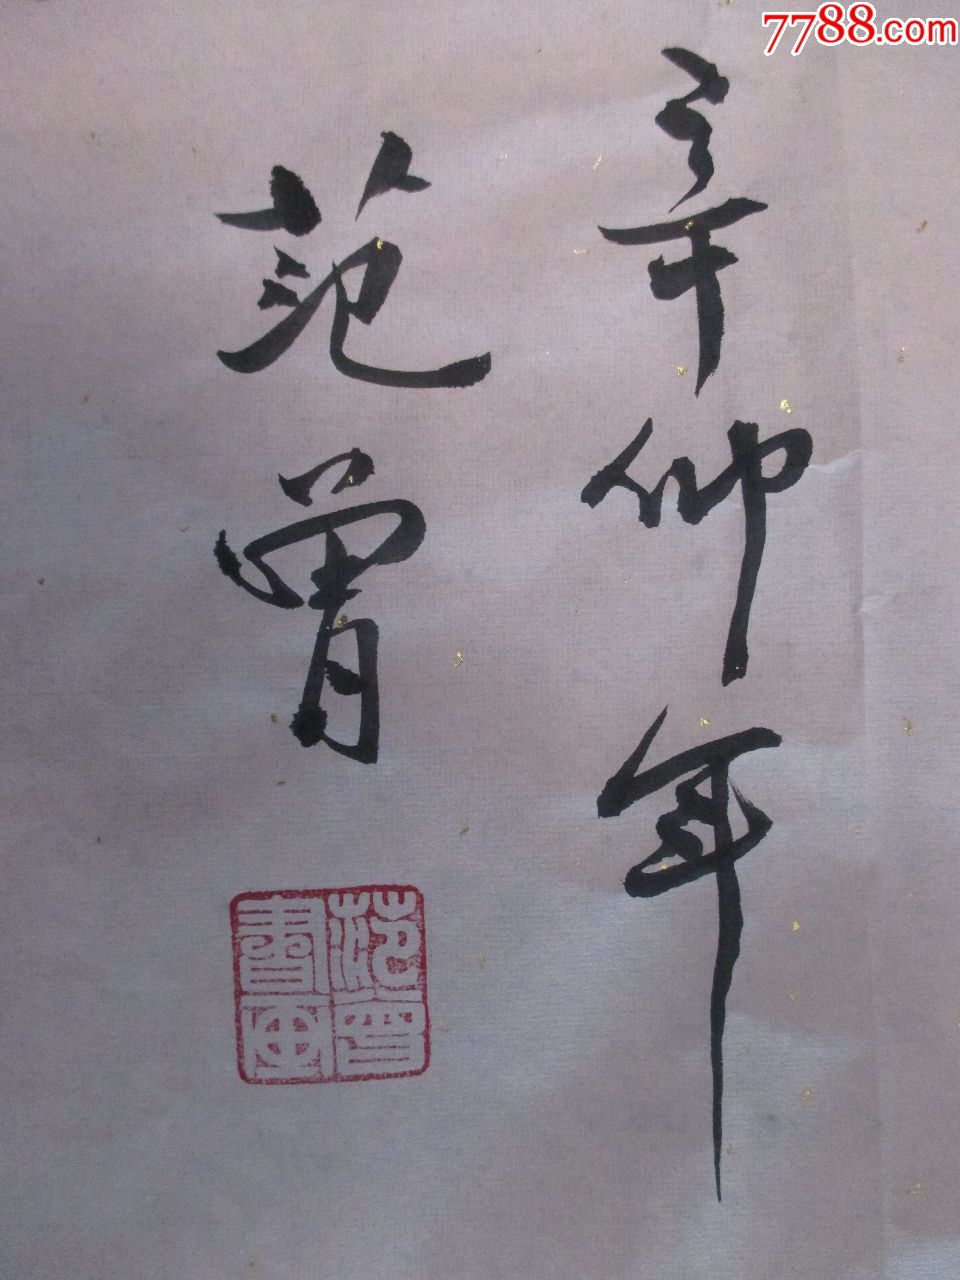 7788.com
辛卯年
范曾
范曾
書畫